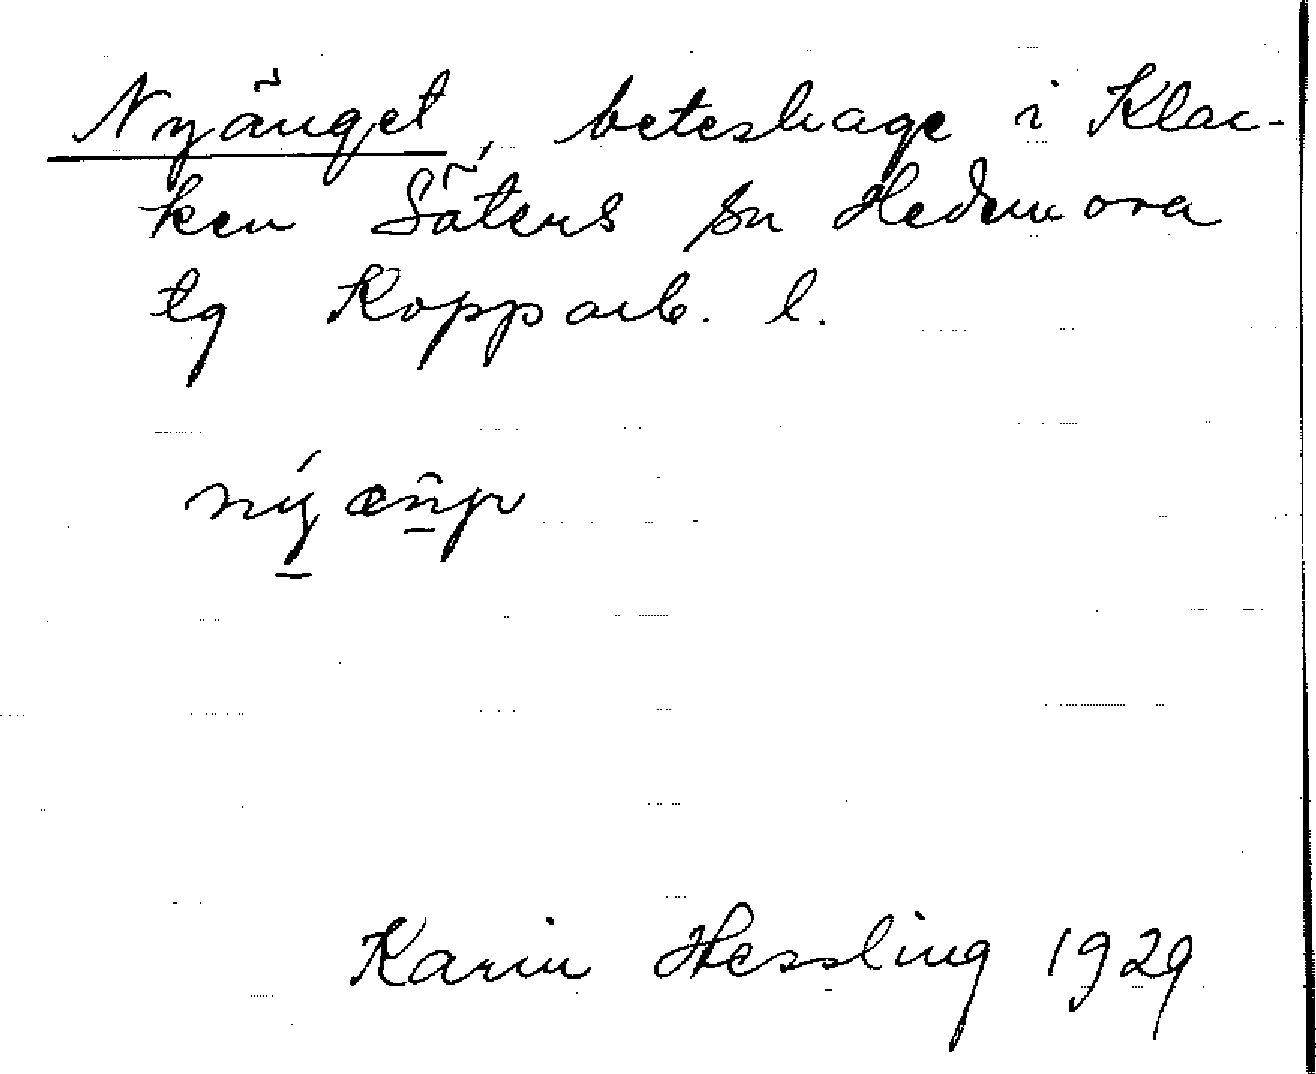 Nyänget, beteshage i Klac-
ken Säters sn Hedemora
tg Kopparb. l.
Karin Hessling 1929